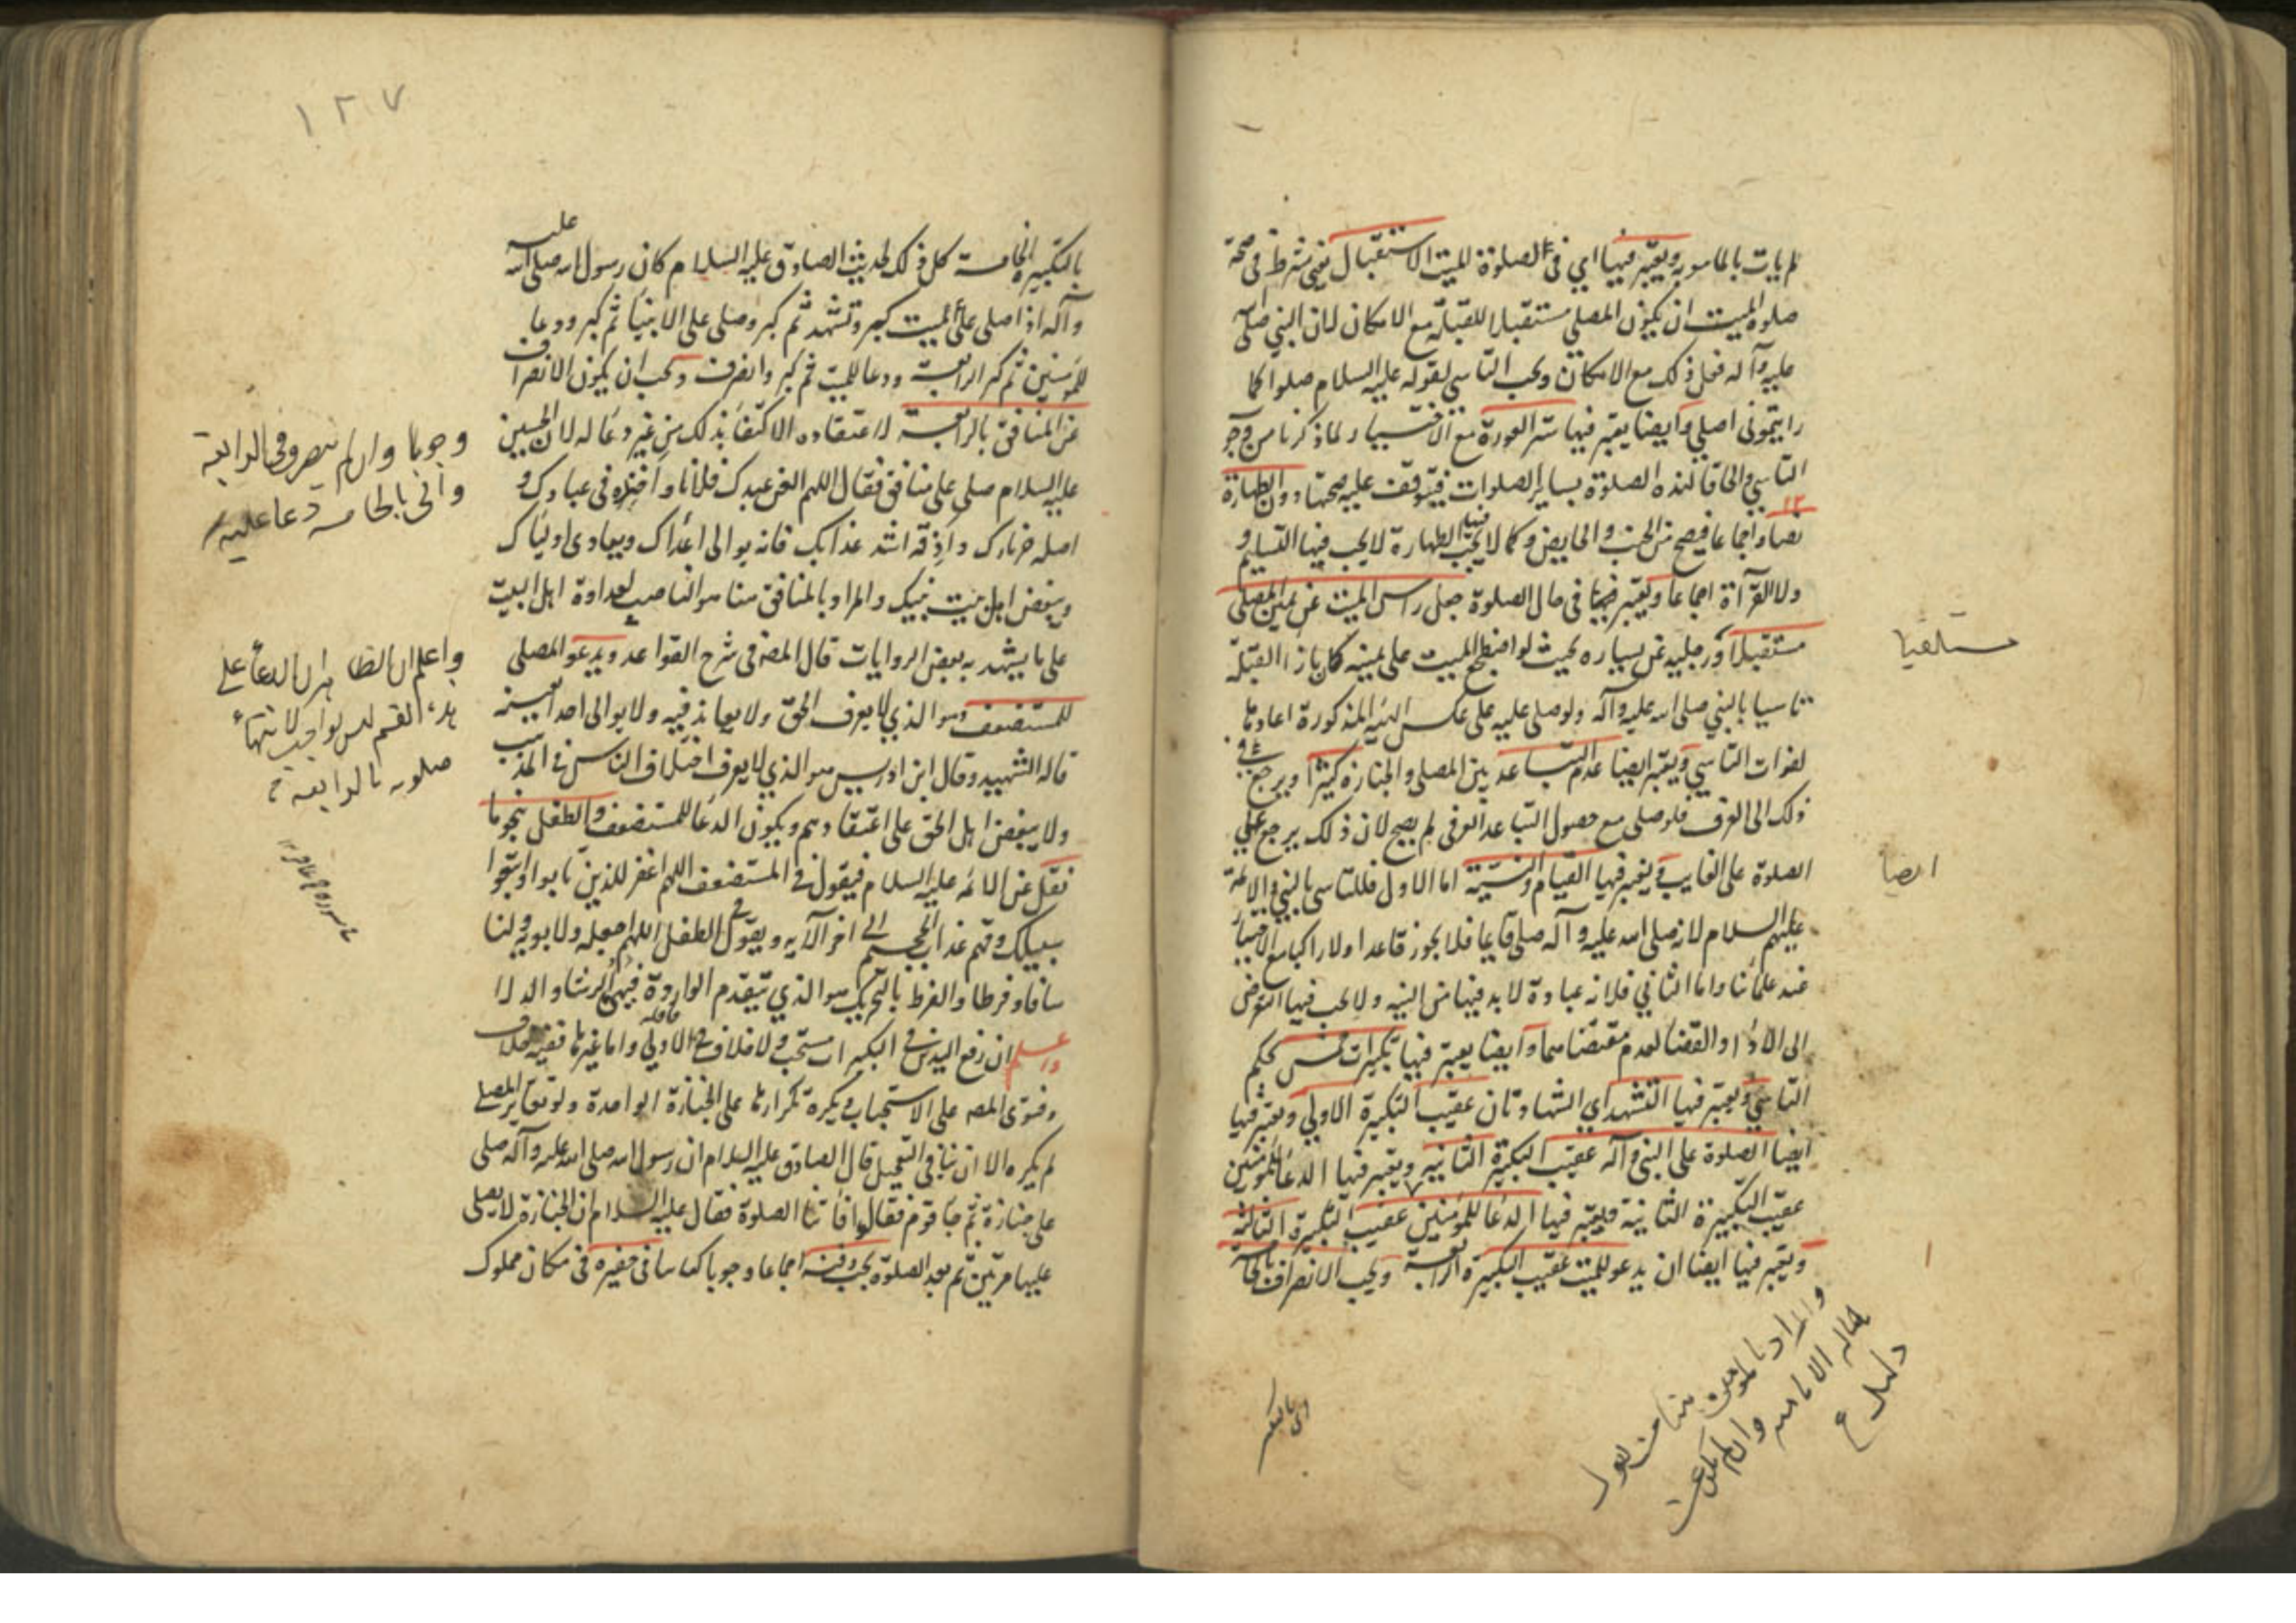 لم يات بالمامور به ويعتبر فيها اي في الصلوة للميت الاستقبال يعني شرط في صحة
صلوة الميت ان يكون المصلي مستقبلا للقبلة مع الامكان لان النبي صلى الله
عليه وآله فعل ذلك مع الامكان ويجب التاسي لقوله عليه السلام صلوا كما
رايتموني اصلي وايضا يعتبر فيها ستر العورة مع الاختيار لما ذكرنا من وجوب
التاسي والحاقا لهذه الصلوة بساير الصلوات فيتوقف عليه صحتها دون الطهارة
نصا واجماعا فيصح من الجنب والحايض وكما لا يجب فيها الطهارة لا يجب فيها التسليم و
ولا القرآءة اجماعا ويعتبر فيها في حال الصلوة جعل راس الميت عن يمين المصلي
مستقبلا ورجليه عن يساره بحيث لو اضطجع الميت على يمينه كان بازاء القبلة
تاسيا بالنبي صلى الله عليه وآله ولو صلى عليه على عكس الهيئة المذكورة اعادها
لفوات التاسي ويعتبر ايضا عدم التباعد بين المصلي والجنازة كثيرا ويرجع في
ذلك الى العرف فلو صلى مع حصول التباعد العرفي لم يصح لان ذلك يرجع الى
الصلوة على الغايب ويعتبر فيها القيام والنية اما الاول فللتاسي بالنبي والائمة
عليهم السلام لانه صلى الله عليه وآله صلى قايما فلا يجوز قاعدا ولا راكبا مع الاختيار
عند علمائنا واما الثاني فلانه عبادة لا بد فيها من النية ولا يجب فيها التعرض
الى الاداء والقضاء لعدم مقتضاهما وايضا يعتبر فيها تكبيرات خمس بحكم
التاسي ويعتبر فيها التشهد اي الشهادتان عقيب التكبيرة الاولى ويعتبر فيها
ايضا الصلوة على النبي وآله عقيب التكبيرة الثانية ويعتبر فيها الدعاء للمؤمنين
عقيب التكبيرة الثانية ويعتبر فيها الدعاء للمؤمنين عقيب التكبيرة الثالثة
ويعتبر فيها ايضا ان يدعو للميت عقيب التكبيرة الرابعة ويجب الانصراف بالخامسة
مستلقيا
ايضا
والمراد بالمؤمن هنا من يقول
بامامة الائمة وان لم يكن عن
دليل
اي بالتكبير
١٢٧
بالتكبيرة الخامسة كل ذلك لحديث الصادق عليه السلام كان رسول الله صلى الله عليه
وآله اذا صلى على الميت كبر وتشهد ثم كبر وصلى على الانبياء ثم كبر ودعا
للمؤمنين ثم كبر الرابعة ودعا للميت ثم كبر وانصرف ويجب ان يكون الانصراف
عن المنافق بالرابعة لاعتقاده الاكتفاء بذلك من غير دعاء له لان الحسين
عليه السلام صلى على منافق فقال اللهم العن عبدك فلانا واخزه في عبادك و
اصله حر نارك واذقه اشد عذابك فانه يوالى اعداك ويعادي اولياك
ويبغض اهل بيت نبيك والمراد بالمنافق هنا هو الناصب لعداوة اهل البيت
على ما يشهد به بعض الروايات قال المصه في شرح القواعد ويدعو المصلي
للمستضعف وهو الذي لا يعرف الحق ولا يعاند فيه ولا يوالى احدا بعينه
قاله الشهيد وقال ابن ادريس هو الذي لا يعرف اختلاف الناس في المذاهب
ولا يبغض اهل الحق على اعتقادهم ويكون الدعاء للمستضعف والطفل بنحو ما
نقل عن الائمه عليه السلام فيقول في المستضعف اللهم اغفر للذين تابوا واتبعوا
سبيلك وقهم عذاب الجحيم الى اخر الآيه ويقول في الطفل اللهم اجعله ولابويه ولنا
سلفا وفرطا والفرط بالتحريك هو الذي يتقدم الواردة فيهئ لهم الرشاء والدلاء
واعلم ان رفع اليدين في التكبيرات مستحب ولا خلاف في الاولى واما غيرها ففيه خلاف
وفتوى المصه على الاستحباب ويكره تكرارها على الجنازة الواحدة ولو تغاير المصلي
لم يكره الا ان ينافي التعجيل قال الصادق عليه السلام ان رسول الله صلى الله عليه وآله صلى
على جنازة ثم جاء قوم فقالوا فاتتنا الصلوة فقال عليه السلام ان الجنازة لا يصلى
عليها مرتين ثم بعد الصلوة يجب دفنه اجماعا وجوبا كفاسا في حفيرة في مكان مملوك
وجوبا وان لم ينصرف في الرابعة
واتى بالخامسة دعا عليه
واعلم ان الظاهر ان الدعاء على
هذا القسم ليس بواجب لانتهاء
صلوته بالرابعة